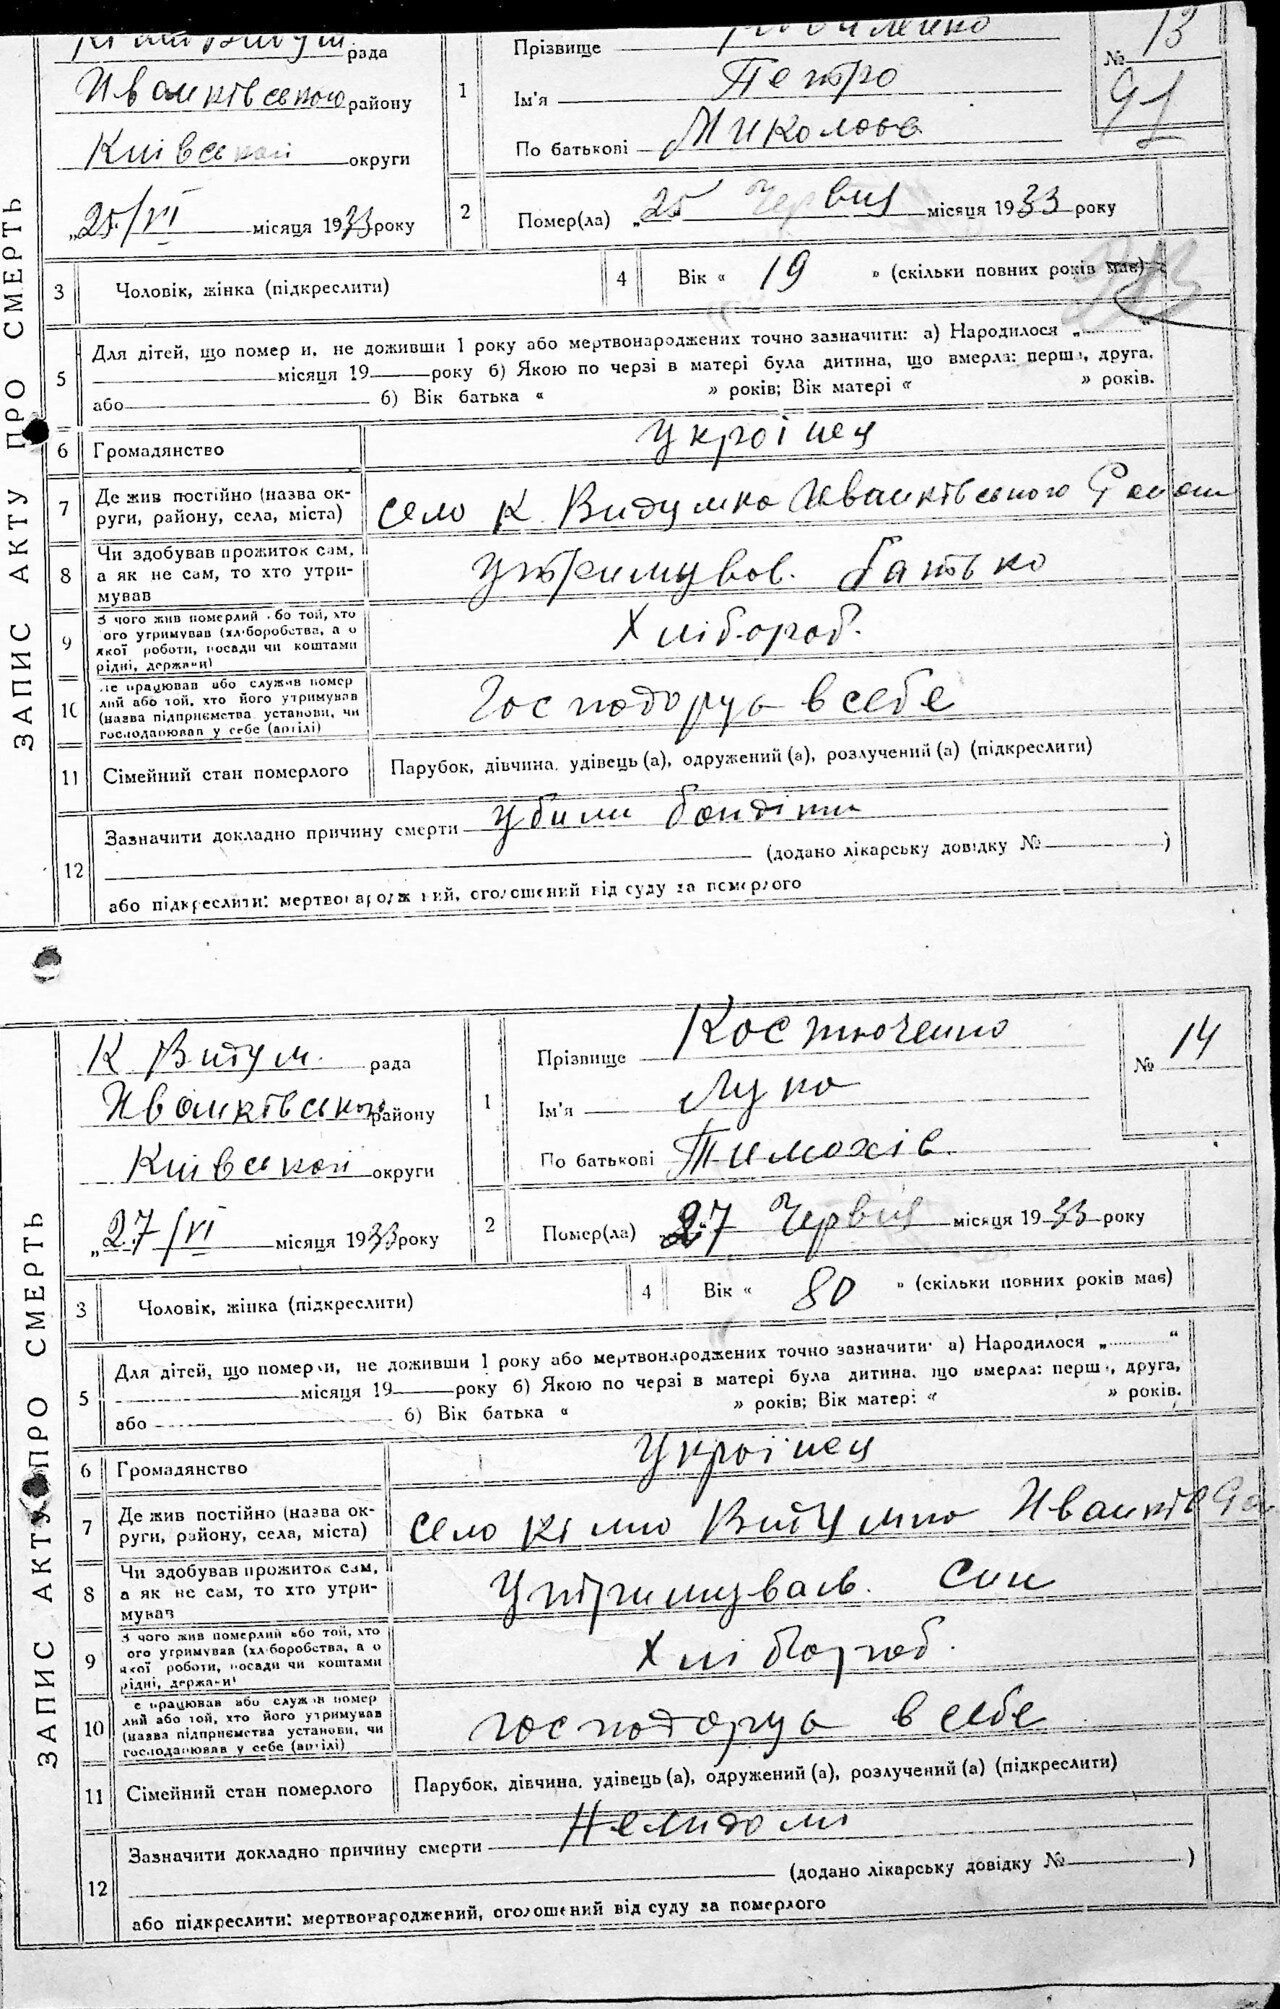 рада
Иванківського району
Київської округи
„25/VI місяця 1933 року
1
Прізвище
Ім'я Петро
По батькові Миколов
№ 13
91
2
Помер(ла) „25 Червня місяця 1933 року
3
Чоловік, жінка (підкреслити)
4
Вік « 19 » (скільки повних років має)
5
Для дітей, що помер и, не доживши 1 року або мертвонароджених точно зазначити: а) Народилося „ “
місяця 19 року б) Якою по черзі в матері була дитина, що вмерла: перша, друга,
або б) Вік батька « » років; Вік матері « » років.
6
Громадянство
Українец
7
Де жив постійно (назва ок-
руги, району, села, міста)
село К. Видумка Иванківського
8
Чи здобував прожиток сам,
а як не сам, то хто утри-
мував
утримував. батько
9
З чого жив померлий або той, хто
ого утримував (хліборобства, а о
якої роботи, посади чи коштами
рідні, держави)
Хлібороб.
10
е працював або служив помер
лий або той, хто його утримував
(назва підприємства установи, чи
господарював у себе (артілі)
Господарува в себе
11
Сімейний стан померлого
Парубок, дівчина, удівець (а), одружений (а), розлучений (а) (підкреслити)
12
Зазначити докладно причину смерти Убили бандіти
(додано лікарську довідку № )
або підкреслити: мертвонароджений, оголошений від суду за померлого
ЗАПИС АКТУ ПРО СМЕРТЬ
К Видум. рада
Иванківського району
Київської округи
„27/VI місяця 1933 року
1
Прізвище Костюченко
Ім'я Лука
По батькові Тимохів.
№ 14
2
Помер(ла) 27 Червня місяця 1933 року
3
Чоловік, жінка (підкреслити)
4
Вік « 80 » (скільки повних років має)
5
Для дітей, що померли, не доживши 1 року або мертвонароджених точно зазначити: а) Народилося „ “
місяця 19 року б) Якою по черзі в матері була дитина, що вмерла: перша, друга,
або б) Вік батька « » років; Вік матері « » років.
6
Громадянство
Українец
7
Де жив постійно (назва ок-
руги, району, села, міста)
село Видумка Иванків
8
Чи здобував прожиток сам,
а як не сам, то хто утри-
мував
утримував. син
9
З чого жив померлий або той, хто
ого утримував (хліборобства, а о
якої роботи, посади чи коштами
рідні, держави)
Хлібороб.
10
е працював або служив помер
лий або той, хто його утримував
(назва підприємства установи, чи
господарював у себе (артілі)
господарува в себе
11
Сімейний стан померлого
Парубок, дівчина, удівець (а), одружений (а), розлучений (а) (підкреслити)
12
Зазначити докладно причину смерти
(додано лікарську довідку № )
або підкреслити: мертвонароджений, оголошений від суду за померлого
ЗАПИС АКТУ ПРО СМЕРТЬ